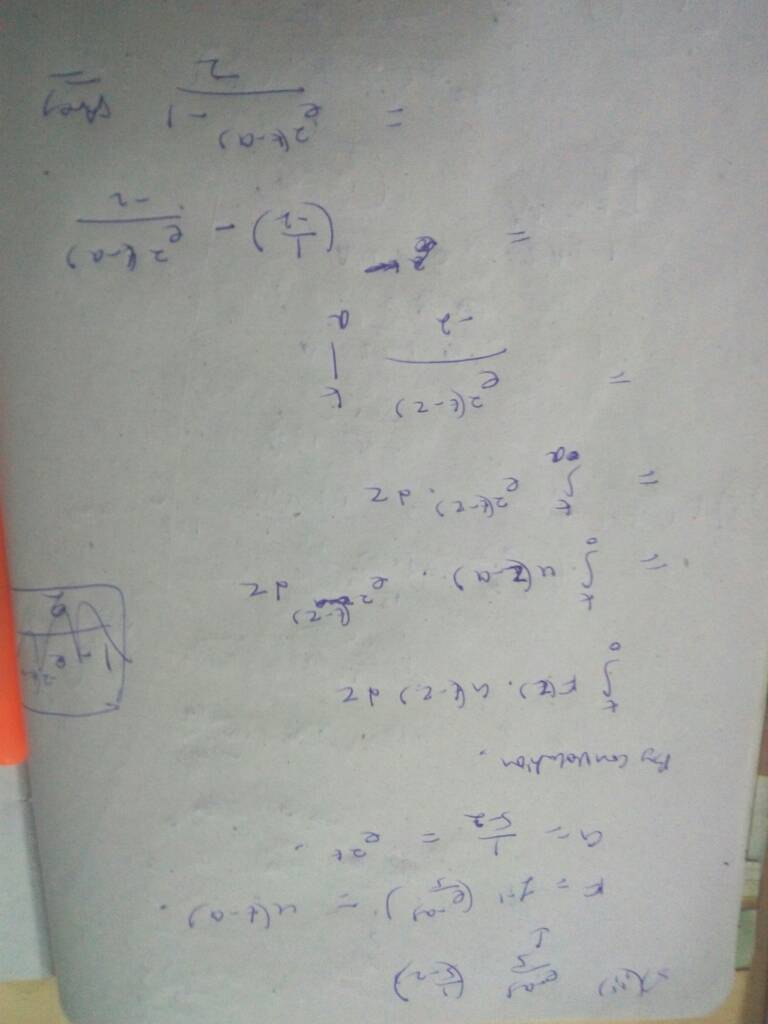 (ii) e^-as/s (1/s-2)
F = L^-1 (e^-as/s) = u(t-a).
G = 1/s-2 = e^2t.
By convolution.
∫_0^t F(z). G(t-z) dz
= ∫_0^t u(z-a). e^2(t-z) dz
= ∫_a^t e^2(t-z). dz
= e^2(t-z)/-2 |_a^t
= (1/-2) - e^2(t-a)/-2
= e^2(t-a) -1/2